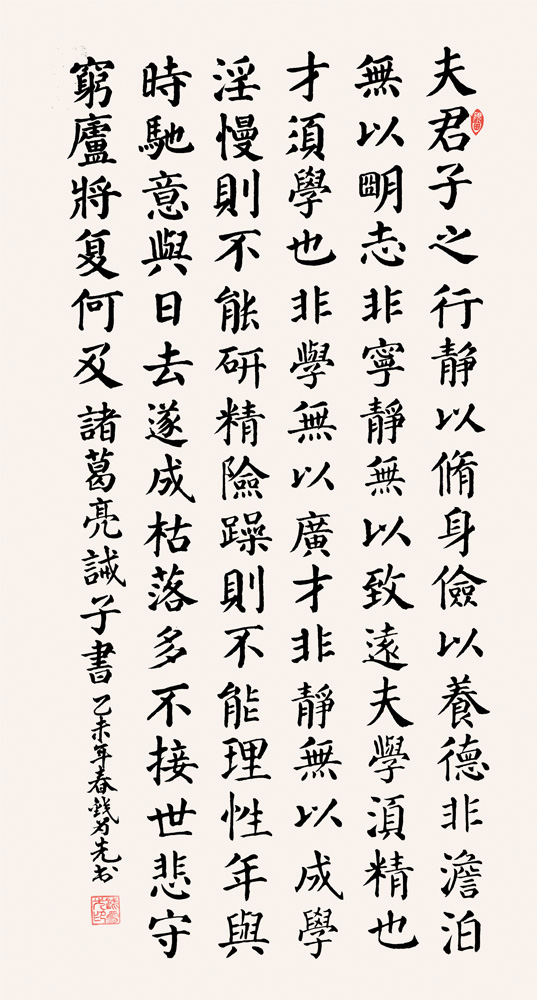 夫君子之行靜以脩身儉以養德非澹泊
無以朙志非寧靜無以致遠夫學須精也
才須學也非學無以廣才非靜無以成學
淫慢則不能研精險躁則不能理性年與
時馳意與日去遂成枯落多不接世悲守
窮廬將复何及諸葛亮誡子書乙未年春錢先书